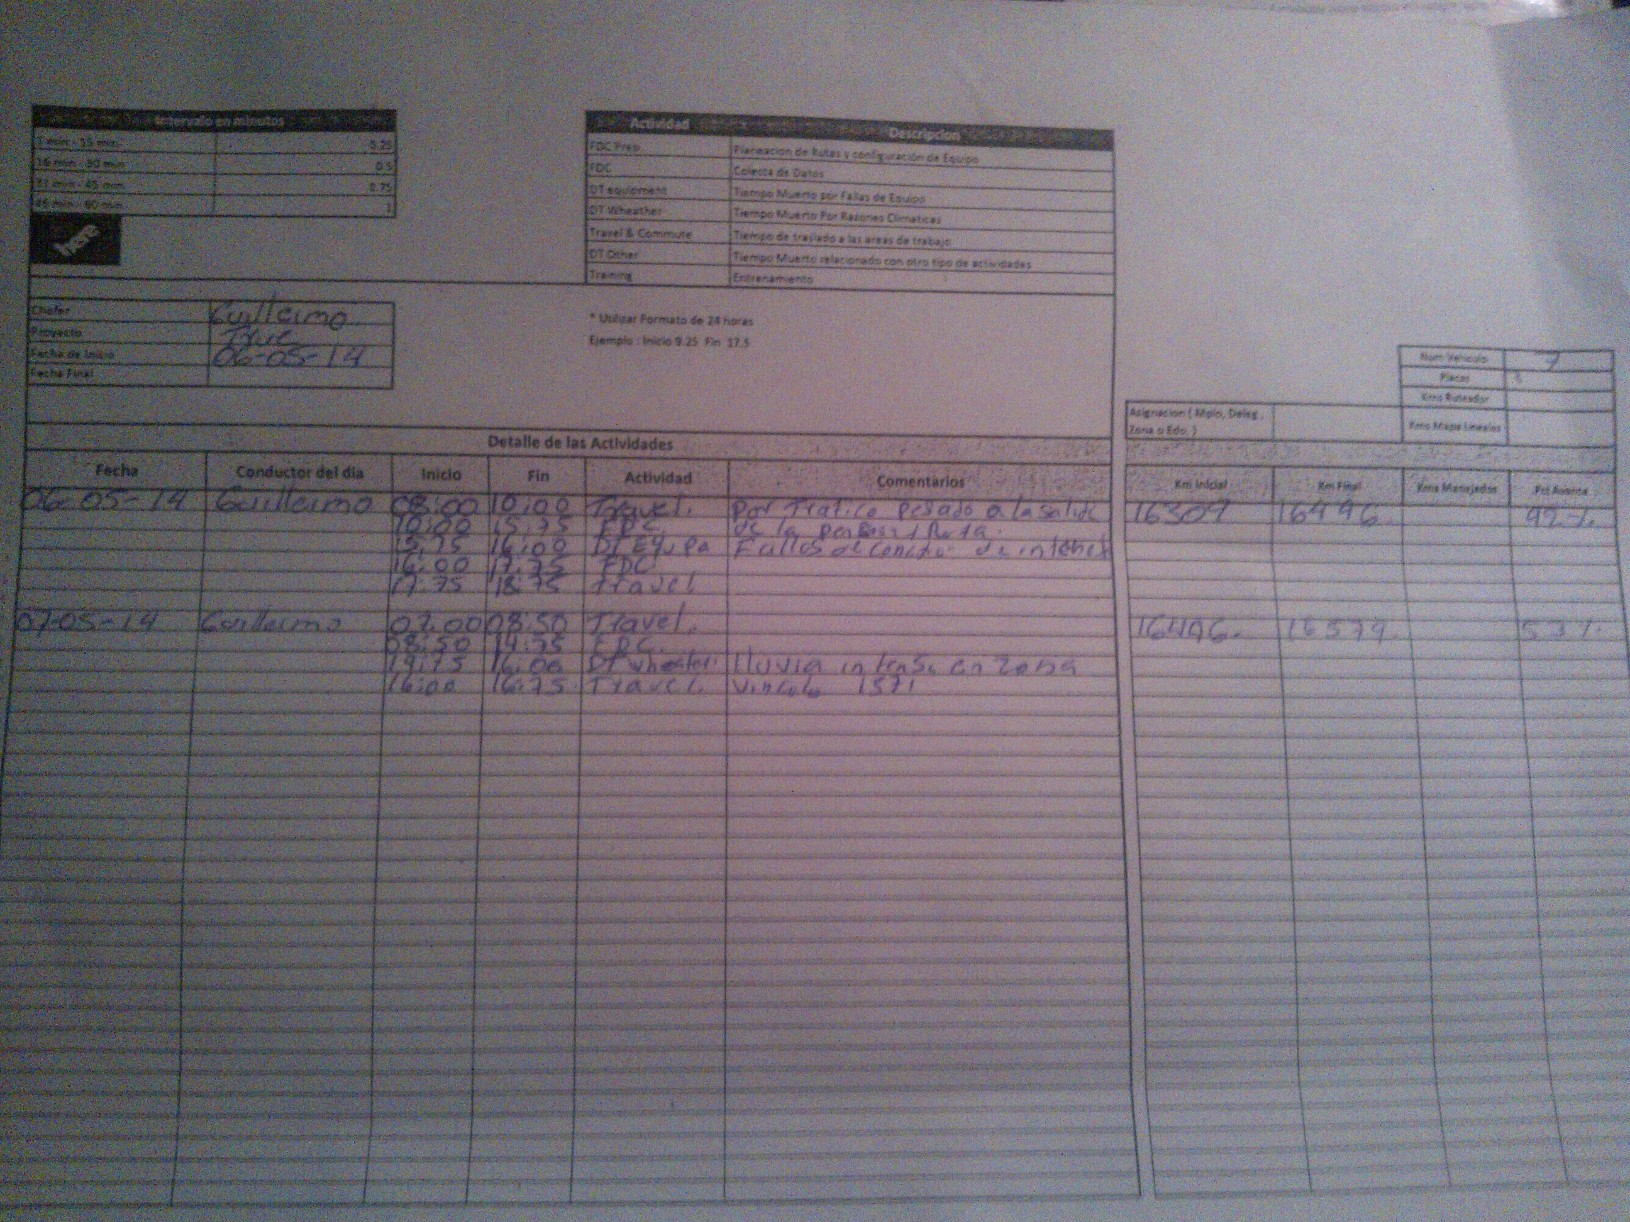 Intervalo en minutos
1 min - 15 min 0.25
16 min - 30 min 0.5
31 min - 45 min 0.75
45 min - 60 min 1
here
Actividad Descripcion
FDC Prep Planeacion de Rutas y configuración de Equipo
FDC Colecta de Datos
DT equipment Tiempo Muerto por Fallas de Equipo
DT Wheather Tiempo Muerto Por Razones Climaticas
Travel & Commute Tiempo de traslado a las areas de trabajo
DT Other Tiempo Muerto relacionado con otro tipo de actividades
Training Entrenamiento
Chofer Guillermo
Proyecto True
Fecha de Inicio 06-05-14
Fecha Final
* Utilizar Formato de 24 horas
Ejemplo : Inicio 9.25 Fin 17.5
Num Vehiculo 7
Placas
Kms Ruteador
Kms Mapa Lineales
Asignacion ( Mpio, Deleg ,
Zona o Edo )
Detalle de las Actividades
Fecha Conductor del dia Inicio Fin Actividad Comentarios Km Inicial Km Final Kms Manejados Pct Avance
06-05-14 Guillermo 08:00 10:00 Travel. Por Trafico pesado a la salida 16309 16496 92%
10:00 15:75 FDC. de la
15:75 16:00 DT Equipo Fallos de de internet
16:00 17:75 FDC.
17:75 18:75 Travel
07-05-14 Guillermo 07:00 08:50 Travel. 16496. 16579 53%
08:50 14:75 FDC.
14:75 16:00 DT wheater. lluvia intensa en zona
16:00 16:75 Travel. vinculo 1571